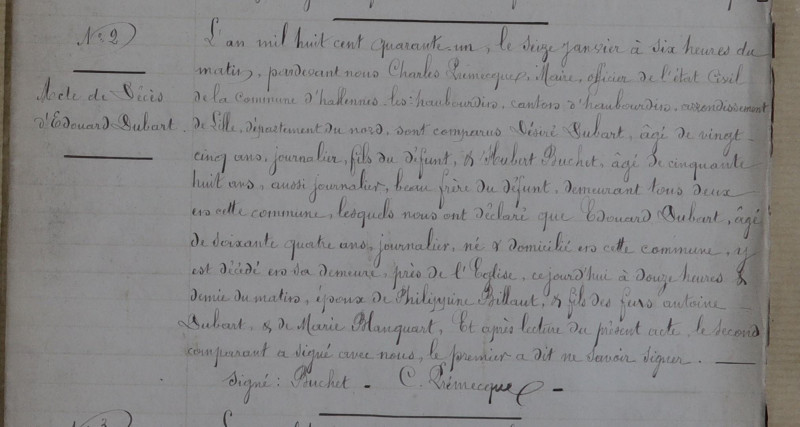 N° 2
Acte de Décès
d'Edouard Dubart
L'an mil huit cent quarante-un, le seize janvier à six heures du
matin, pardevant nous Charles Prémecque, Maire, officier de l'état Civil
de la Commune d'hallennes-les-haubourdin, canton d'haubourdin, arrondissement
de Lille, département du nord, sont comparus Désiré Dubart, âgé de vingt-
cinq ans, journalier, fils du défunt, & Hubert Buchet, âgé de cinquante
huit ans, aussi journalier, beau frère du défunt, demeurant tous deux
en cette commune, lesquels nous ont déclaré que Edouard Dubart, âgé
de soixante quatre ans, journalier, né & domicilié en cette commune, y
est décédé en sa demeure, près de l'Eglise, ce jourd'hui à douze heures &
demie du matin, époux de Philippine Billaut, & fils des feus antoine
Dubart, & de Marie Blanquart, Et après lecture du présent acte, le second
comparant a signé avec nous, le premier a dit ne savoir signer. —
Signé : Buchet - C. Prémecque -
N° 3